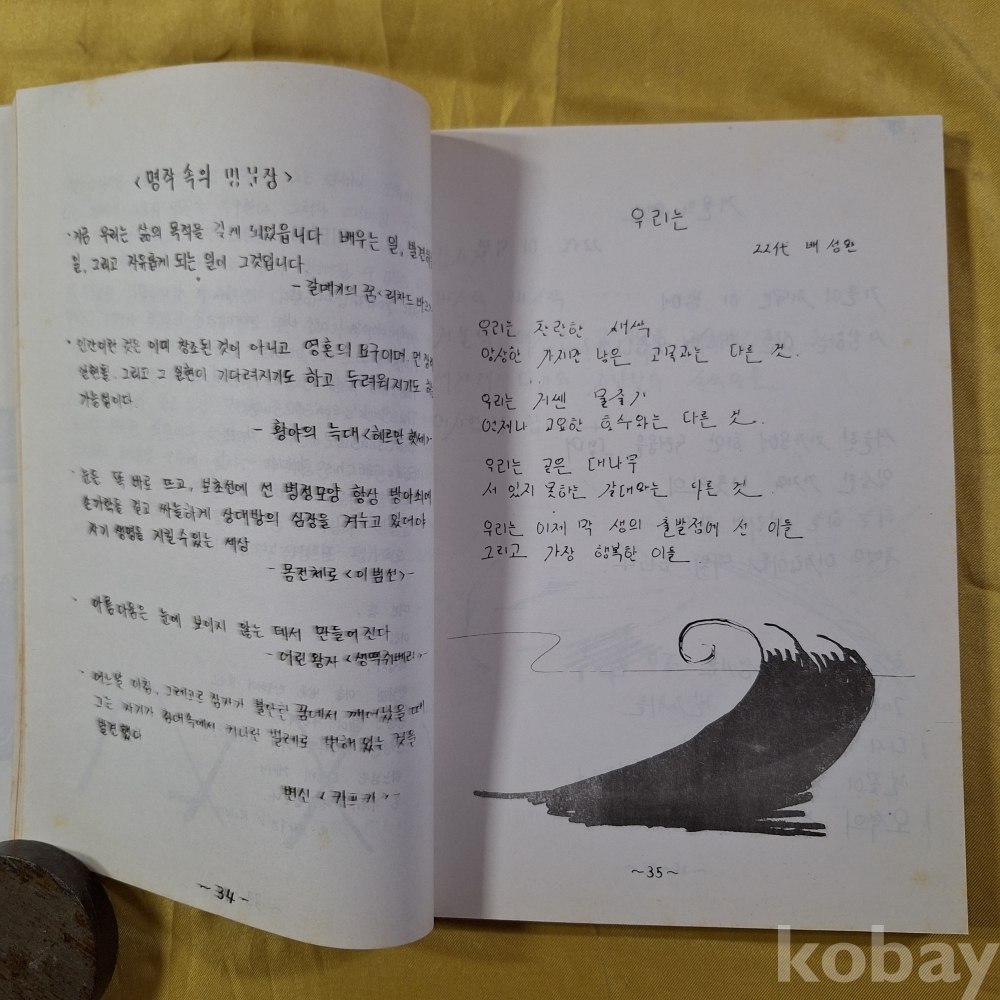 <명작 속의 명문장>
·지금 우리는 삶의 목적을 갖게 되었읍니다 배우는 일, 발견하는
일, 그리고 자유롭게 되는 일이 그것입니다.
- 갈매기의 꿈 <리차드 바크>
·인간이란 것은 이미 창조된 것이 아니고 영혼의 요구이며, 먼 장래
실현을, 그리고 그 실현이 기다려지기도 하고 두려워지기도 하
가능성이다.
- 황야의 늑대 <헤르만 헷세>-
·눈을 똑 바로 뜨고, 보초선에 선 병정모양 항상 방아쇠에
손가락을 걸고 싸늘하게 상대방의 심장을 겨누고 있어야
자기 생명을 지킬 수 있는 세상
- 몸전체로 <이범선>-
· 아름다움은 눈에 보이지 않는 데서 만들어진다
- 어린 왕자 <생떽쥐베리>-
· 어느날 아침, 그레고르 잠자가 불안한 꿈에서 깨어났을 때,
그는 자기가 침대속에서 커다란 벌레로 변해 있는 것을
발견했다
변신 <카프카>-
~34~
우리는
22代 배성완
우리는 찬란한 새싹
앙상한 가지만 남은 고목과는 다른 것.
우리는 거센 물줄기
언제나 고요한 호수와는 다른 것.
우리는 곧은 대나무
서 있지 못하는 갈대와는 다른 것.
우리는 이제 막 생의 출발점에 선 이들
그리고 가장 행복한 이들
~35~
kobay